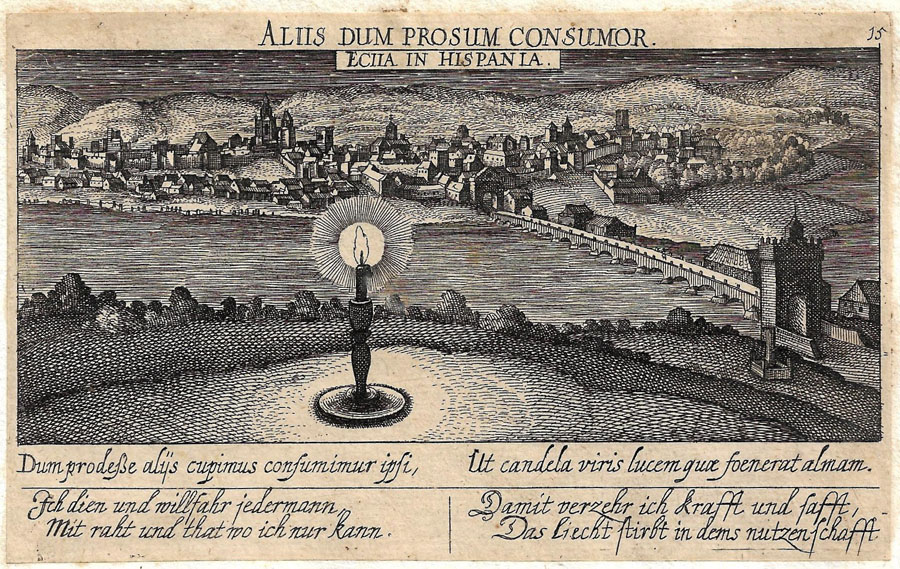 ALIIS DUM PROSUM CONSUMOR.
15
ECIIA IN HISPANIA.
Dum prodeße alijs cupimus consumimur ipsi,
Ut candela viris lucem quæ foenerat almam.
Ich dien und willfahr jedermann,
Mit raht und that wo ich nur kann.
Damit verzehr ich krafft und safft,
Das liecht stirbt in dems nutzen schafft